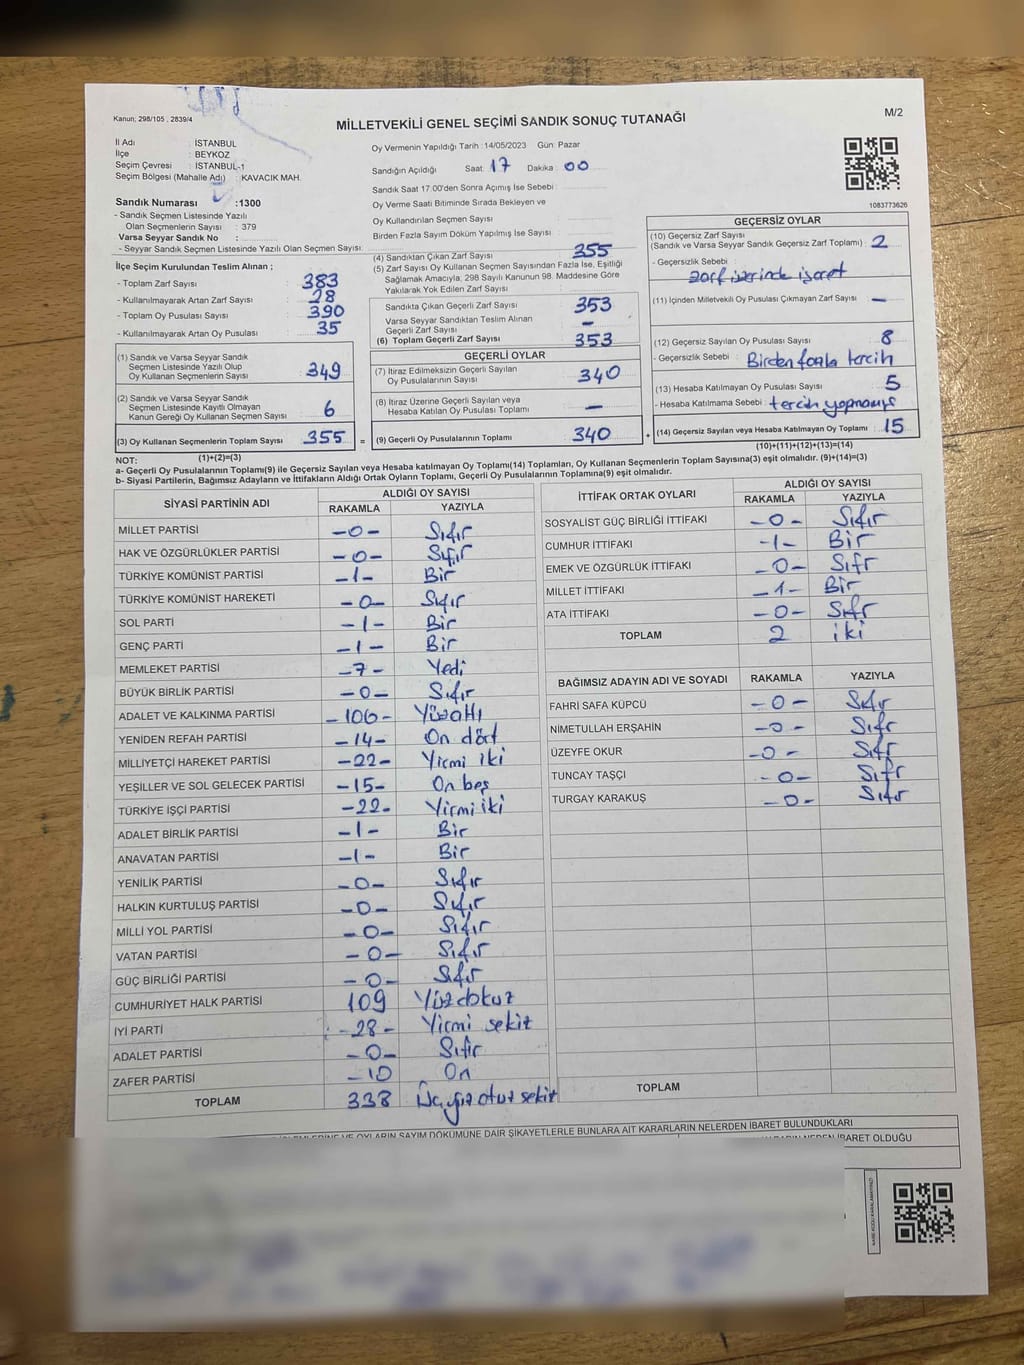 Kanun; 298/105 , 2839/4
MİLLETVEKİLİ GENEL SEÇİMİ SANDIK SONUÇ TUTANAĞI
M/2
İl Adı : İSTANBUL
İlçe : BEYKOZ
Seçim Çevresi : İSTANBUL-1
Seçim Bölgesi (Mahalle Adı) : KAVACIK MAH.
Sandık Numarası :1300
- Sandık Seçmen Listesinde Yazılı
Olan Seçmenlerin Sayısı : 379
Varsa Seyyar Sandık No :
- Seyyar Sandık Seçmen Listesinde Yazılı Olan Seçmen Sayısı:
Oy Vermenin Yapıldığı Tarih : 14/05/2023 Gün: Pazar
Sandığın Açıldığı Saat: 17 Dakika : 00
Sandık Saat 17.00'den Sonra Açılmış İse Sebebi :
Oy Verme Saati Bitiminde Sırada Bekleyen ve
Oy Kullandırılan Seçmen Sayısı :
Birden Fazla Sayım Döküm Yapılmış İse Sayısı :
1083773626
İlçe Seçim Kurulundan Teslim Alınan ;
- Toplam Zarf Sayısı : 383
- Kullanılmayarak Artan Zarf Sayısı : 28
- Toplam Oy Pusulası Sayısı : 390
- Kullanılmayarak Artan Oy Pusulası : 35
(1) Sandık ve Varsa Seyyar Sandık
Seçmen Listesinde Yazılı Olup
Oy Kullanan Seçmenlerin Sayısı : 349
(2) Sandık ve Varsa Seyyar Sandık
Seçmen Listesinde Kayıtlı Olmayan
Kanun Gereği Oy Kullanan Seçmen Sayısı : 6
(3) Oy Kullanan Seçmenlerin Toplam Sayısı : 355 =
(1)+(2)=(3)
(4) Sandıktan Çıkan Zarf Sayısı : 355
(5) Zarf Sayısı Oy Kullanan Seçmen Sayısından Fazla İse, Eşitliği
Sağlamak Amacıyla, 298 Sayılı Kanunun 98. Maddesine Göre
Yakılarak Yok Edilen Zarf Sayısı :
Sandıkta Çıkan Geçerli Zarf Sayısı : 353
Varsa Seyyar Sandıktan Teslim Alınan
Geçerli Zarf Sayısı : –
(6) Toplam Geçerli Zarf Sayısı : 353
GEÇERLİ OYLAR
(7) İtiraz Edilmeksizin Geçerli Sayılan
Oy Pusulalarının Sayısı : 340
(8) İtiraz Üzerine Geçerli Sayılan veya
Hesaba Katılan Oy Pusulası Toplamı : –
(9) Geçerli Oy Pusulalarının Toplamı : 340 +
GEÇERSİZ OYLAR
(10) Geçersiz Zarf Sayısı
(Sandık ve Varsa Seyyar Sandık Geçersiz Zarf Toplamı) : 2
- Geçersizlik Sebebi :
zarf üzerinde işaret
(11) İçinden Milletvekili Oy Pusulası Çıkmayan Zarf Sayısı : –
(12) Geçersiz Sayılan Oy Pusulası Sayısı : 8
- Geçersizlik Sebebi : Birden fazla tercih
(13) Hesaba Katılmayan Oy Pusulası Sayısı : 5
- Hesaba Katılmama Sebebi : tercih yapmamış
(14) Geçersiz Sayılan veya Hesaba Katılmayan Oy Toplamı : 15
(10)+(11)+(12)+(13)=(14)
NOT:
a- Geçerli Oy Pusulalarının Toplamı(9) ile Geçersiz Sayılan veya Hesaba katılmayan Oy Toplamı(14) Toplamları, Oy Kullanan Seçmenlerin Toplam Sayısına(3) eşit olmalıdır. (9)+(14)=(3)
b- Siyasi Partilerin, Bağımsız Adayların ve İttifakların Aldığı Ortak Oyların Toplamı, Geçerli Oy Pusulalarının Toplamına(9) eşit olmalıdır.
SİYASİ PARTİNİN ADI ALDIĞI OY SAYISI
RAKAMLA YAZIYLA
MİLLET PARTİSI -0- Sıfır
HAK VE ÖZGÜRLÜKLER PARTİSİ -0- Sıfır
TÜRKİYE KOMÜNİST PARTİSİ -1- Bir
TÜRKİYE KOMÜNİST HAREKETİ -0- Sıfır
SOL PARTİ -1- Bir
GENÇ PARTİ -1- Bir
MEMLEKET PARTİSİ -7- Yedi
BÜYÜK BİRLİK PARTİSİ -0- Sıfır
ADALET VE KALKINMA PARTİSİ -106- Yüzaltı
YENİDEN REFAH PARTİSİ -14- On dört
MİLLİYETÇİ HAREKET PARTİSİ -22- Yirmi iki
YEŞİLLER VE SOL GELECEK PARTİSİ -15- On beş
TÜRKİYE İŞÇİ PARTİSİ -22- Yirmi iki
ADALET BİRLİK PARTİSİ -1- Bir
ANAVATAN PARTİSİ -1- Bir
YENİLİK PARTİSİ -0- Sıfır
HALKIN KURTULUŞ PARTİSİ -0- Sıfır
MİLLİ YOL PARTİSİ -0- Sıfır
VATAN PARTİSİ -0- Sıfır
GÜÇ BİRLİĞİ PARTİSİ -0- Sıfır
CUMHURİYET HALK PARTİSİ 109 Yüzdokuz
İYİ PARTİ -28- Yirmi sekiz
ADALET PARTİSİ -0- Sıfır
ZAFER PARTİSİ -10 On
TOPLAM 338 Üçyüzotuz sekiz
İTTİFAK ORTAK OYLARI ALDIĞI OY SAYISI
RAKAMLA YAZIYLA
SOSYALİST GÜÇ BİRLİĞİ İTTİFAKI -0- Sıfır
CUMHUR İTTİFAKI -1- Bir
EMEK VE ÖZGÜRLÜK İTTİFAKI -0- Sıfr
MİLLET İTTİFAKI -1- Bir
ATA İTTİFAKI -0- Sıfr
TOPLAM 2 iki
BAĞIMSIZ ADAYIN ADI VE SOYADI RAKAMLA YAZIYLA
FAHRİ SAFA KÜPCÜ -0- Sıfır
NİMETULLAH ERŞAHİN -0- Sıfr
ÜZEYFE OKUR -0- Sıfr
TUNCAY TAŞÇI -0- Sıfr
TURGAY KARAKUŞ -0- Sıfr
TOPLAM
OYLARIN SAYIM DÖKÜMÜNE DAİR ŞİKAYETLERLE BUNLARA AİT KARARLARIN NELERDEN İBARET BULUNDUKLARI
İBARET OLDUĞU